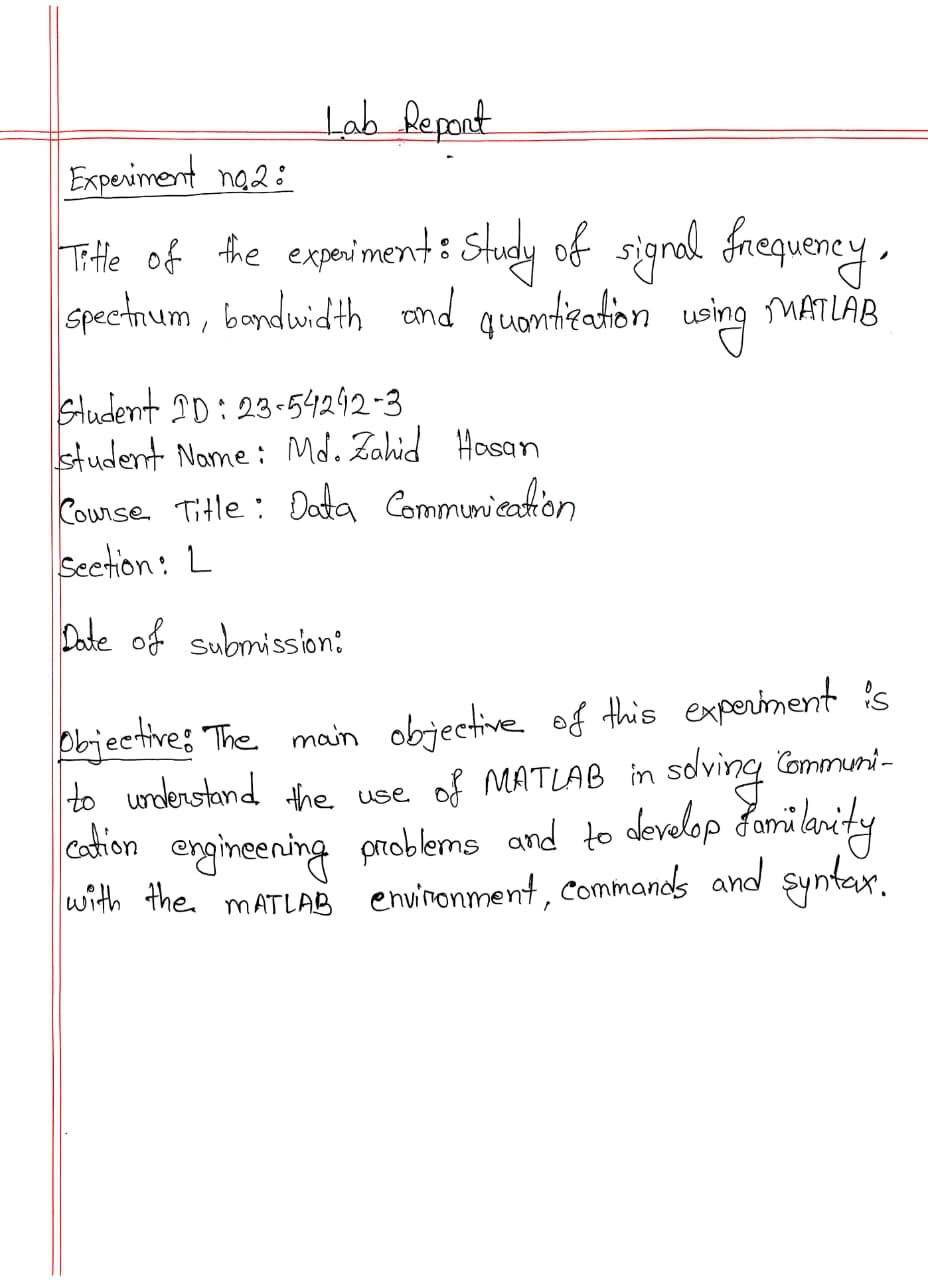 Lab Report
Experiment no.2:
Title of the experiment: Study of signal frequency,
spectrum, bandwidth and quantization using MATLAB
Student ID: 23-54242-3
Student Name: Md. Zahid Hasan
Course Title: Data Communication
Section: L
Date of submission:
Objective: The main objective of this experiment is
to understand the use of MATLAB in solving Communi-
cation engineering problems and to develop familarity
with the MATLAB environment, commands and syntax.